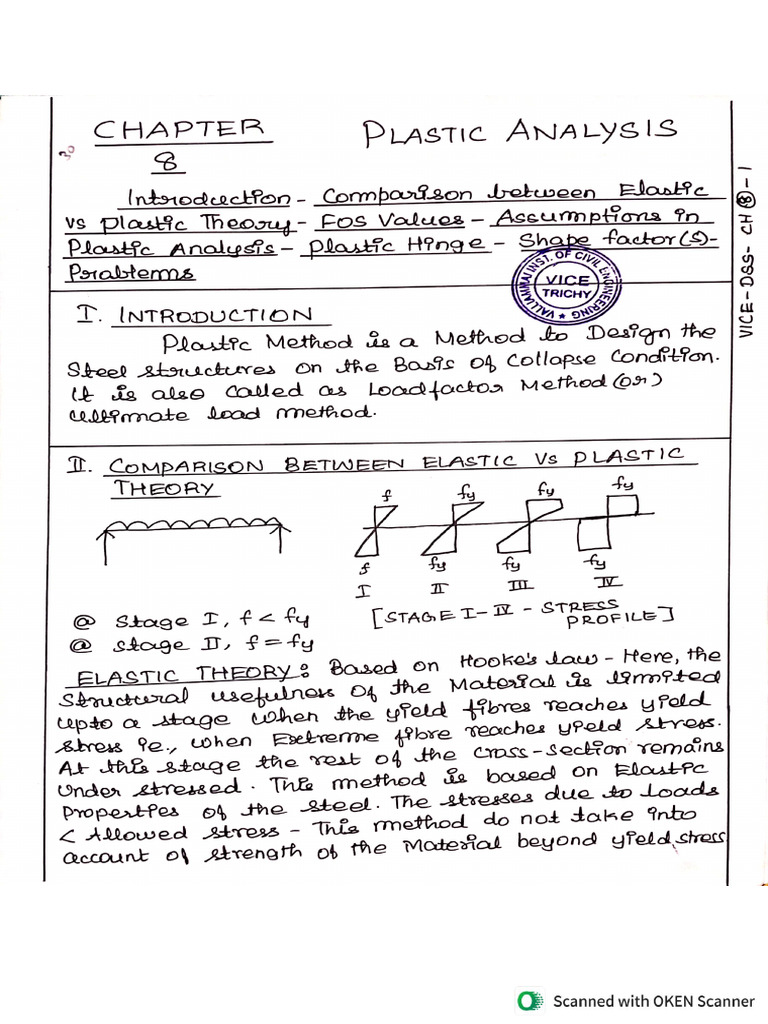 CHAPTER 8 PLASTIC ANALYSIS
30
Introduction - Comparison between Elastic
vs Plastic Theory - FOS Values - Assumptions in
Plastic Analysis - Plastic Hinge - Shape factor(s) -
Problems
VALLIAMMAI INST. OF CIVIL ENGINEERING
VICE
TRICHY
VICE-DSS-CH⑧-1
I. INTRODUCTION
Plastic Method is a Method to Design the
Steel structures on the Basis of Collapse Condition.
It is also Called as Loadfactor Method (or)
Ultimate load method.
II. COMPARISON BETWEEN ELASTIC Vs PLASTIC
THEORY
f fy fy fy
f fy fy fy
I II III IV
[STAGE I-IV - STRESS
PROFILE]
@ Stage I, f < fy
@ stage II, f = fy
ELASTIC THEORY: Based on Hooke's law - Here, the
Structural usefulness of the Material is limited
upto a stage when the yield fibres reaches yield
stress ie., when Extreme fibre reaches yield stress.
At this stage the rest of the cross-section remains
under stressed. This method is based on Elastic
properties of the steel. The stresses due to Loads
< Allowed stress - This method do not take into
account of strength of the Material beyond yield stress
Scanned with OKEN Scanner